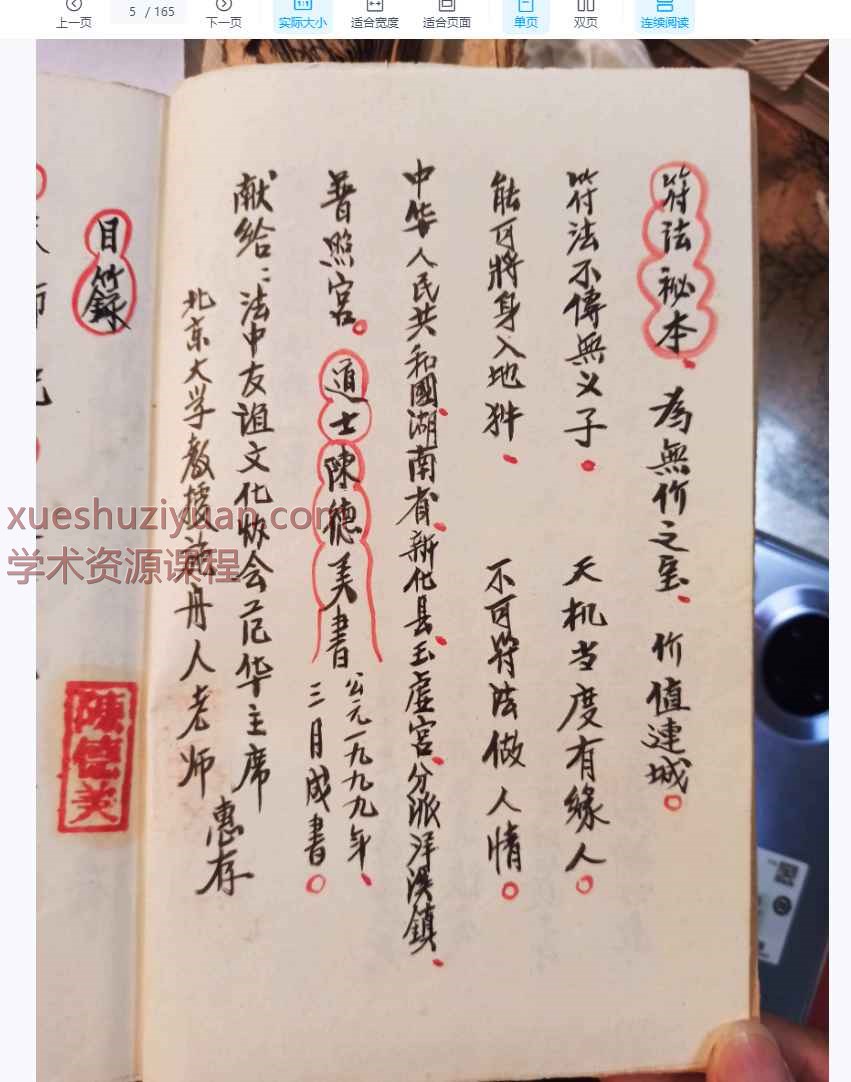 上一页 5 / 165 下一页 实际大小 适合宽度 适合页面 单页 双页 连续阅读
符法秘本、為無价之宝、价值連城。
符法不傳無义子。天机当度有緣人。
能可將身入地 、不可符法做人情。
中华人民共和國、湖南省、新化县、玉虚宫、分派洋溪鎮、
普照宫。道士陳德美書
公元一九九九年、
三月成書。
献给:法中友谊文化协会范华主席
北京大学教授施舟人老师
惠存
目錄
陳德美
xueshuziyuan.com
学术资源课程